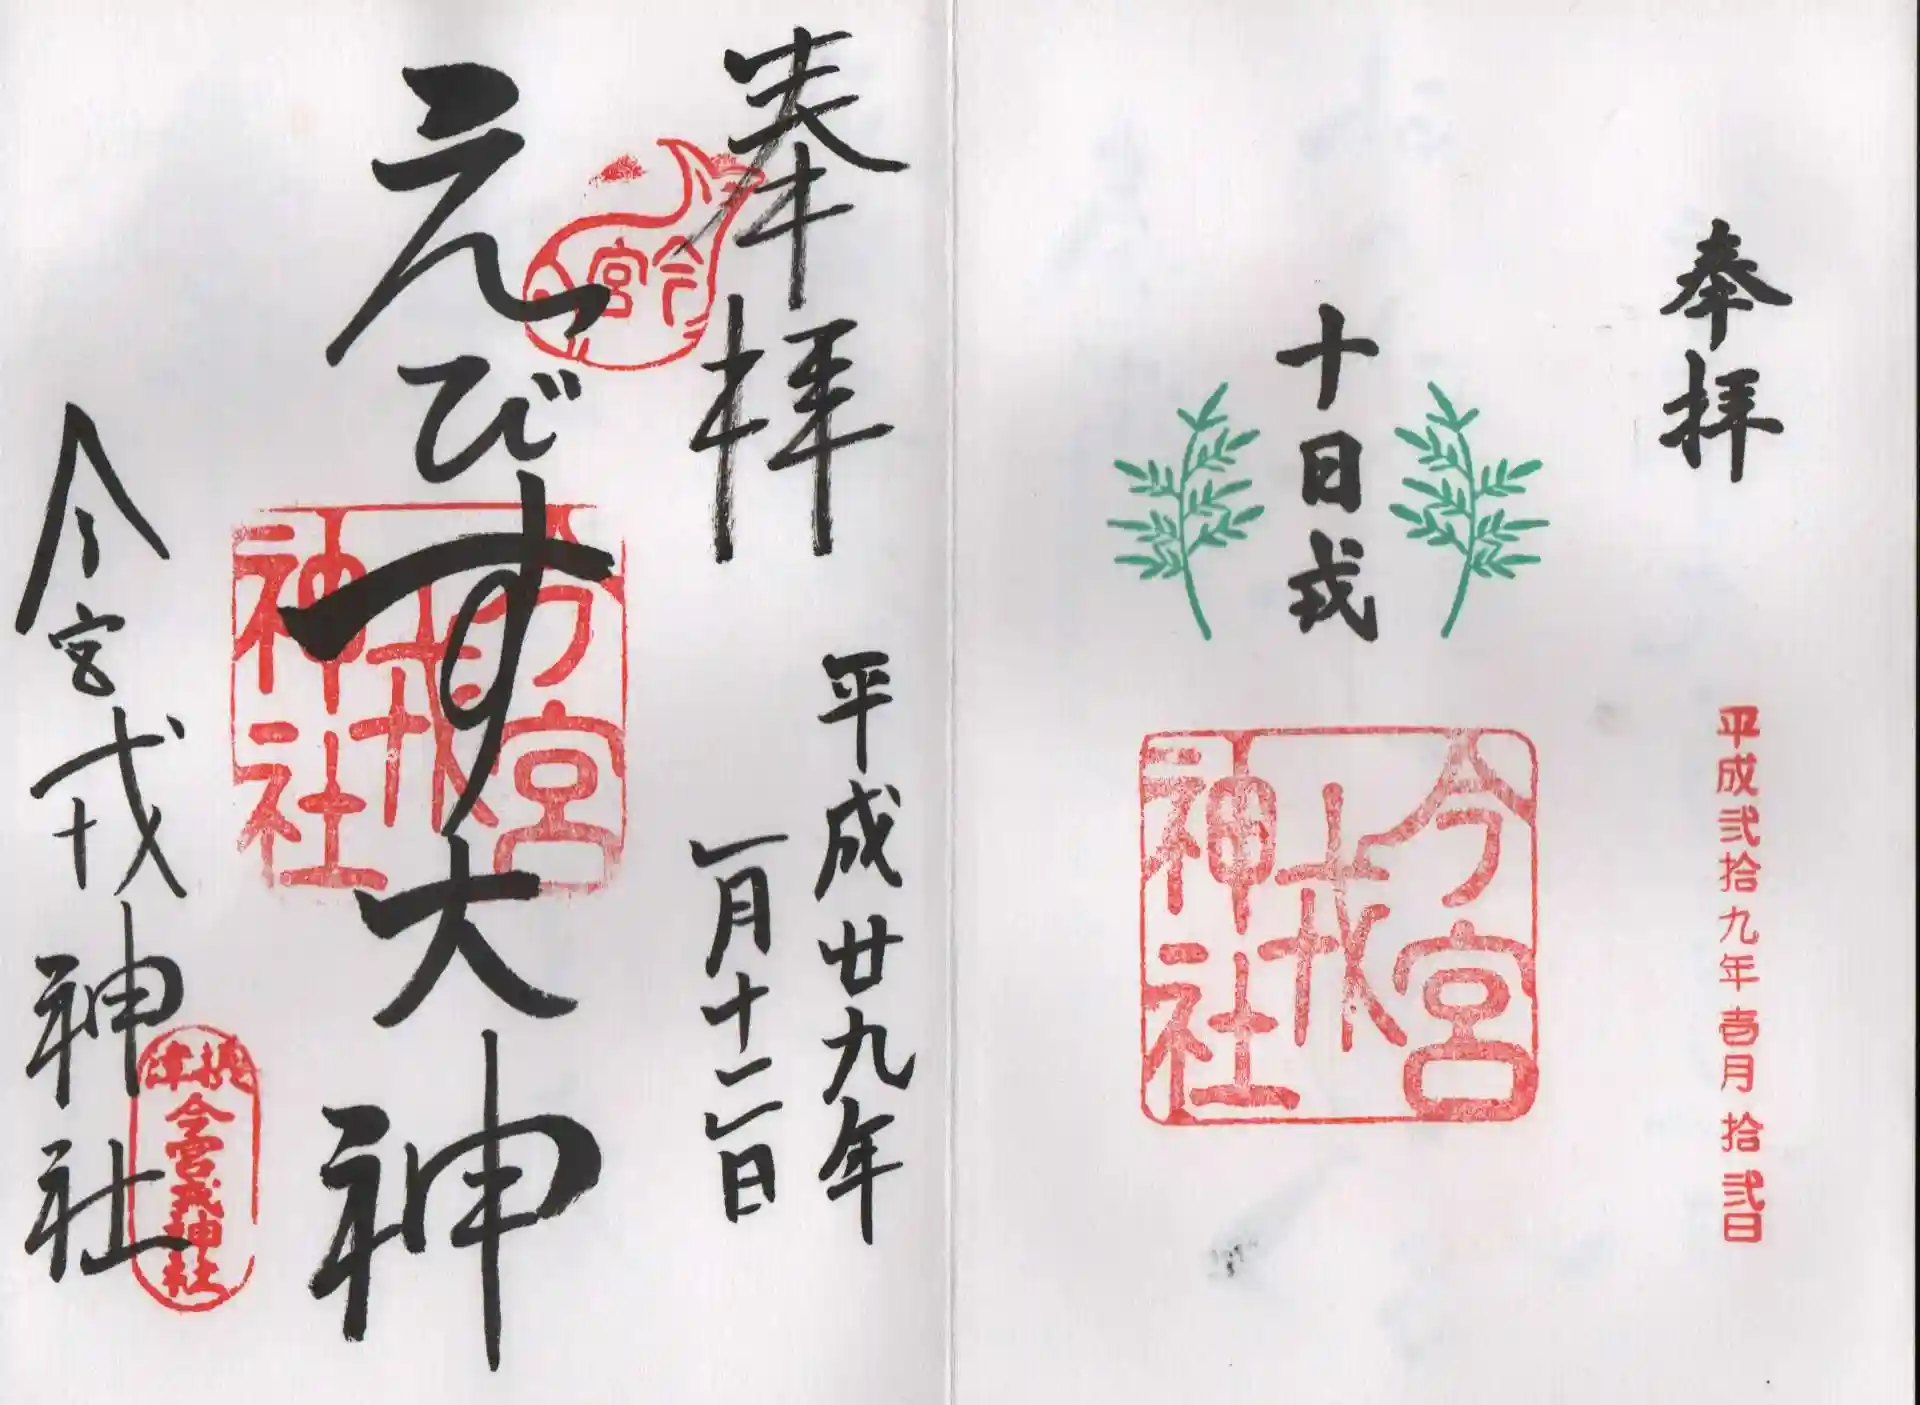 奉拝
平成弐拾九年壱月拾弐日
十日戎
今宮
戎
神社
奉拝
平成廿九年
一月十二日
今宮
えびす大神
今宮
戎
神社
今宮戎神社
摂津
今宮戎神社